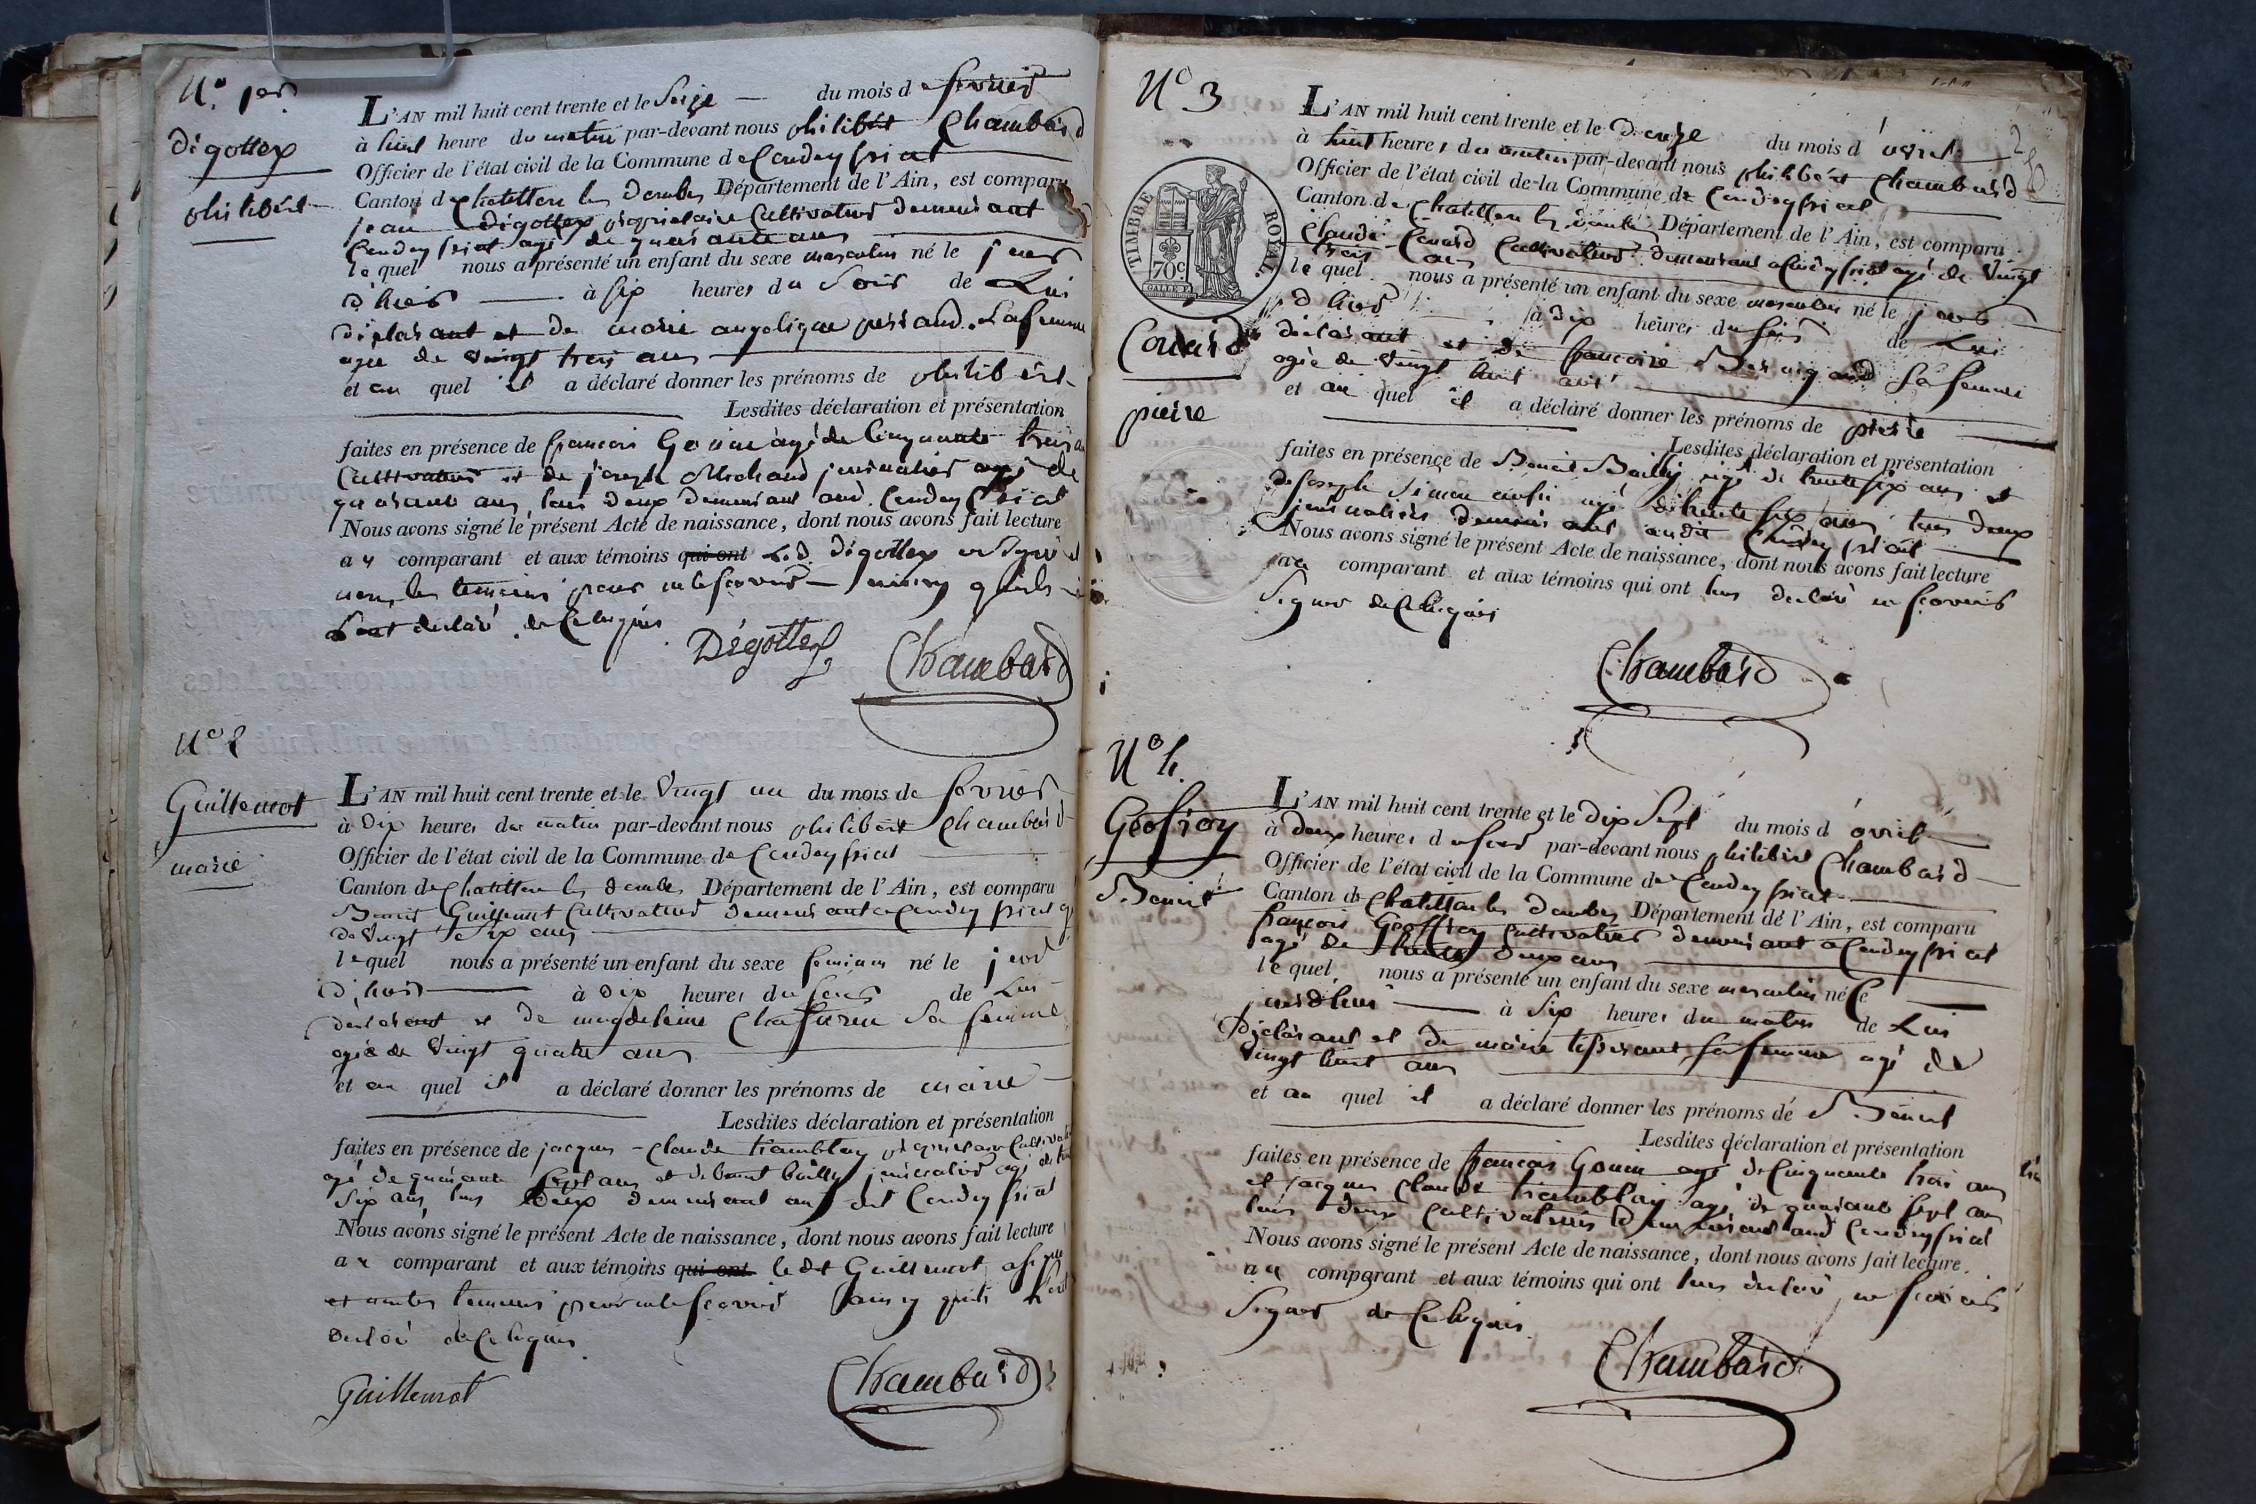 N.o 1er
dégottex
philibért
L'AN mil huit cent trente et le Seize du mois de fevrier
à huit heure du matin par-devant nous philibért Chambard
Officier de l'état civil de la Commune de Condeyssiat
Canton de Chatillon les dombes Département de l'Ain, est comparu
jean dégottex proprietaire Cultivateur demeurant
Condeyssiat agé de quarante ans
lequel nous a présenté un enfant du sexe masculin né le jour
d'hier à six heures du Soir de Lui
déclarant et de marie angelique Sa femme
agée de Vingt trois ans
et au quel il a déclaré donner les prénoms de philibért
Lesdites déclaration et présentation
faites en présence de francois Gouin agé de Cinquante trois
Cultivateur et de joseph Michaud journalier agé de
quarante ans, tous deux demeurant aud. Condeyssiat
Nous avons signé le présent Acte de naissance, dont nous avons fait lecture
au comparant et aux témoins qui ont L.d. dégottex a Signé et
non les temoins pour ne le scavoir ainsy quils
Sont declaré de Ce Requis
Dégottex
Chambard
N.o 2
Guillemot
marie
L'AN mil huit cent trente et le Vingt un du mois de fevrier
à Dix heures du matin par-devant nous philibért Chambard
Officier de l'état civil de la Commune de Condeyssiat
Canton de Chatillon les dombes Département de l'Ain, est comparu
Benoit Guillemot Cultivateur demeurant a Condeyssiat
de Vingt Six ans
lequel nous a présenté un enfant du sexe feminin né le jour
D'hier à Dix heures du Soir de Lui
declarant et de magdeleine Sa femme
agée de Vingt quatre ans
et au quel il a déclaré donner les prénoms de marie
Lesdites déclaration et présentation
faites en présence de jacques Claude tramblay
agé de quarante Sept ans et de benoit bailly journalier agé de
Six ans, tous deux demeurant au dit Condeyssiat
Nous avons signé le présent Acte de naissance, dont nous avons fait lecture
au comparant et aux témoins qui ont le dt Guillemot a signé
temoins pour ne le scavoir ainsy quils
declaré de Ce Requis
Guillemot
Chambard
N.o 3
TIMBRE ROYAL
70c
Couard
pierre
L'AN mil huit cent trente et le du mois d'avril
à huit heures du matin par-devant nous philibért Chambard
Officier de l'état civil de la Commune de Condeyssiat
Canton de Chatillon les dombes Département de l'Ain, est comparu
Claude Couard Cultivateur demeurant a Condeyssiat agé de Vingt
trois ans
lequel nous a présenté un enfant du sexe masculin né le jour
d'hier à dix heures du Soir de Lui
déclarant et de francoise Sa femme
agée de Vingt huit ans
et au quel il a déclaré donner les prénoms de pierre
Lesdites déclaration et présentation
faites en présence de Benoit Bailly agé de trente six ans et
de Joseph Simon aussi agé de trente six ans, tous deux
journaliers demeurant audit Condeyssiat
Nous avons signé le présent Acte de naissance, dont nous avons fait lecture
au comparant et aux témoins qui ont tous declaré ne scavoir
Signer de Ce Requis
Chambard
N.o 4.
Geofroy
Benoit
L'AN mil huit cent trente et le dix Sept du mois d'avril
à deux heures du soir par-devant nous philibért Chambard
Officier de l'état civil de la Commune de Condeyssiat
Canton de Chatillon les dombes Département de l'Ain, est comparu
françois Geoffroy Cultivateur demeurant a Condeyssiat
agé de trente deux ans
lequel nous a présenté un enfant du sexe masculin né Ce
jourdhui à Six heures du matin de Lui
Déclarant et de marie Sa femme agé de
Vingt huit ans
et au quel il a déclaré donner les prénoms de Benoit
Lesdites déclaration et présentation
faites en présence de francois Gouin agé de Cinquante trois ans
et jacques Claude tramblay agé de quarante sept ans
tous deux Cultivateurs demeurant aud Condeyssiat
Nous avons signé le présent Acte de naissance, dont nous avons fait lecture
au comparant et aux témoins qui ont tous declaré ne scavoir
Signer de Ce Requis
Chambard